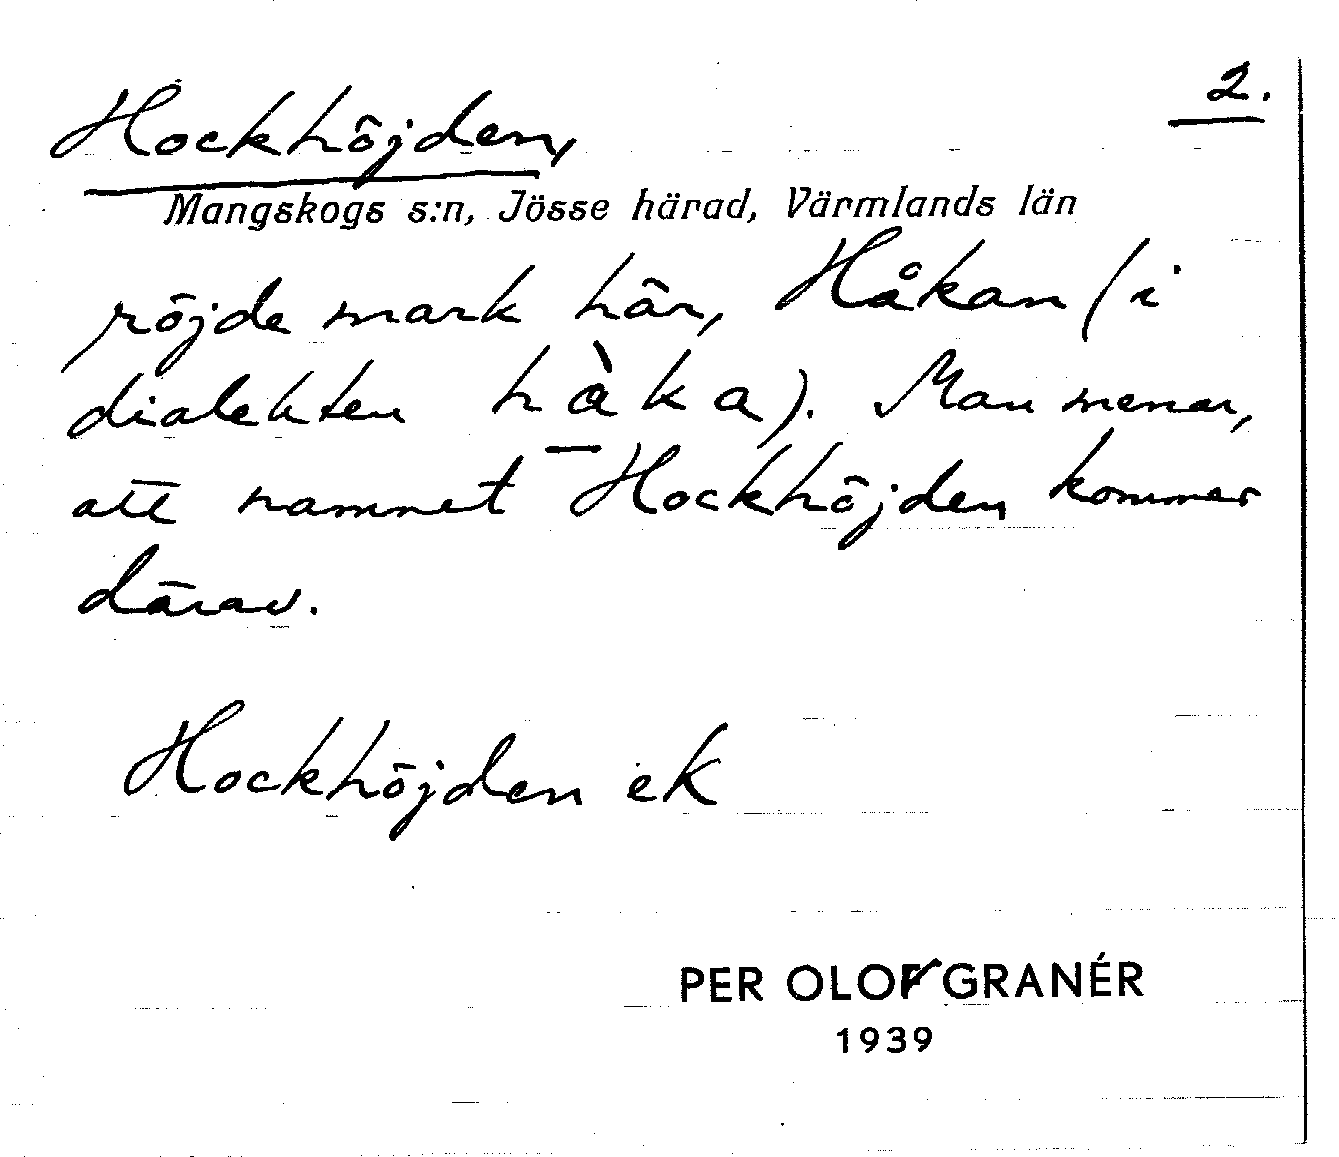 2.
Hockhöjden,
Mangskogs s:n, Jösse härad, Värmlands län
röjde mark här, Håkan (i
dialekten hàka). Man menar,
att namnet Hockhöjden kommer
därav.
Hockhöjden ek
PER OLOF GRANÉR
1939